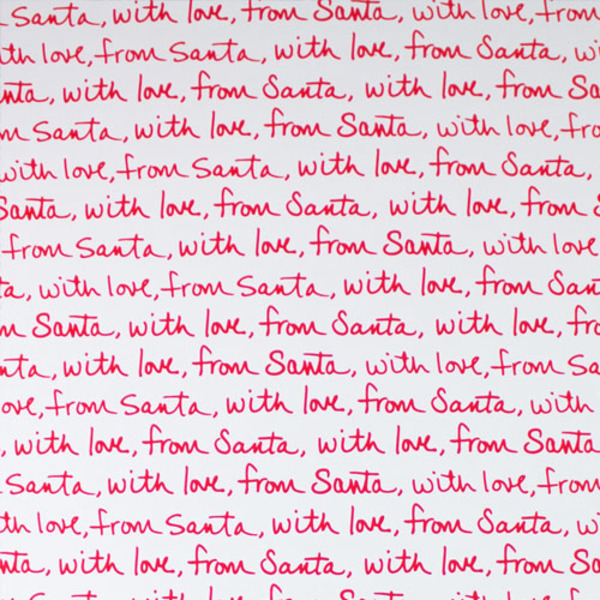 Santa, with love, from Santa, with love, from
with love, from Santa, with love, from Santa, with
Santa, with love, from Santa, with love, from Santa
from Santa, with love, from Santa, with love, from
with love, from Santa, with love, from Santa,
Santa, with love, from Santa, with love, from
from Santa, with love, from Santa, with love
with love, from Santa, with love, from Santa
Santa, with love, from Santa, with love, from
with love, from Santa, with love, from Santa
love, from Santa, with love, from Santa, with
, with love, from Santa, with love, from Santa
Santa, with love, from Santa, with love, from
with love, from Santa, with love, from Santa,
with love, from Santa, with love, from Santa